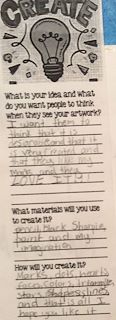 CREATE
What is your idea and what
do you want people to think
when they see your artwork?
I want them to
think that it is
and that it
is very creative and
that they like my
and they
LOVE IT!
What materials will you use
to create it?
pencil, black Sharpie,
paint and my
imagination
How will you create it?
Marks, dots, hearts
faces, colors, triangle,
star, shapes, lines
and that's all I
hope you like it